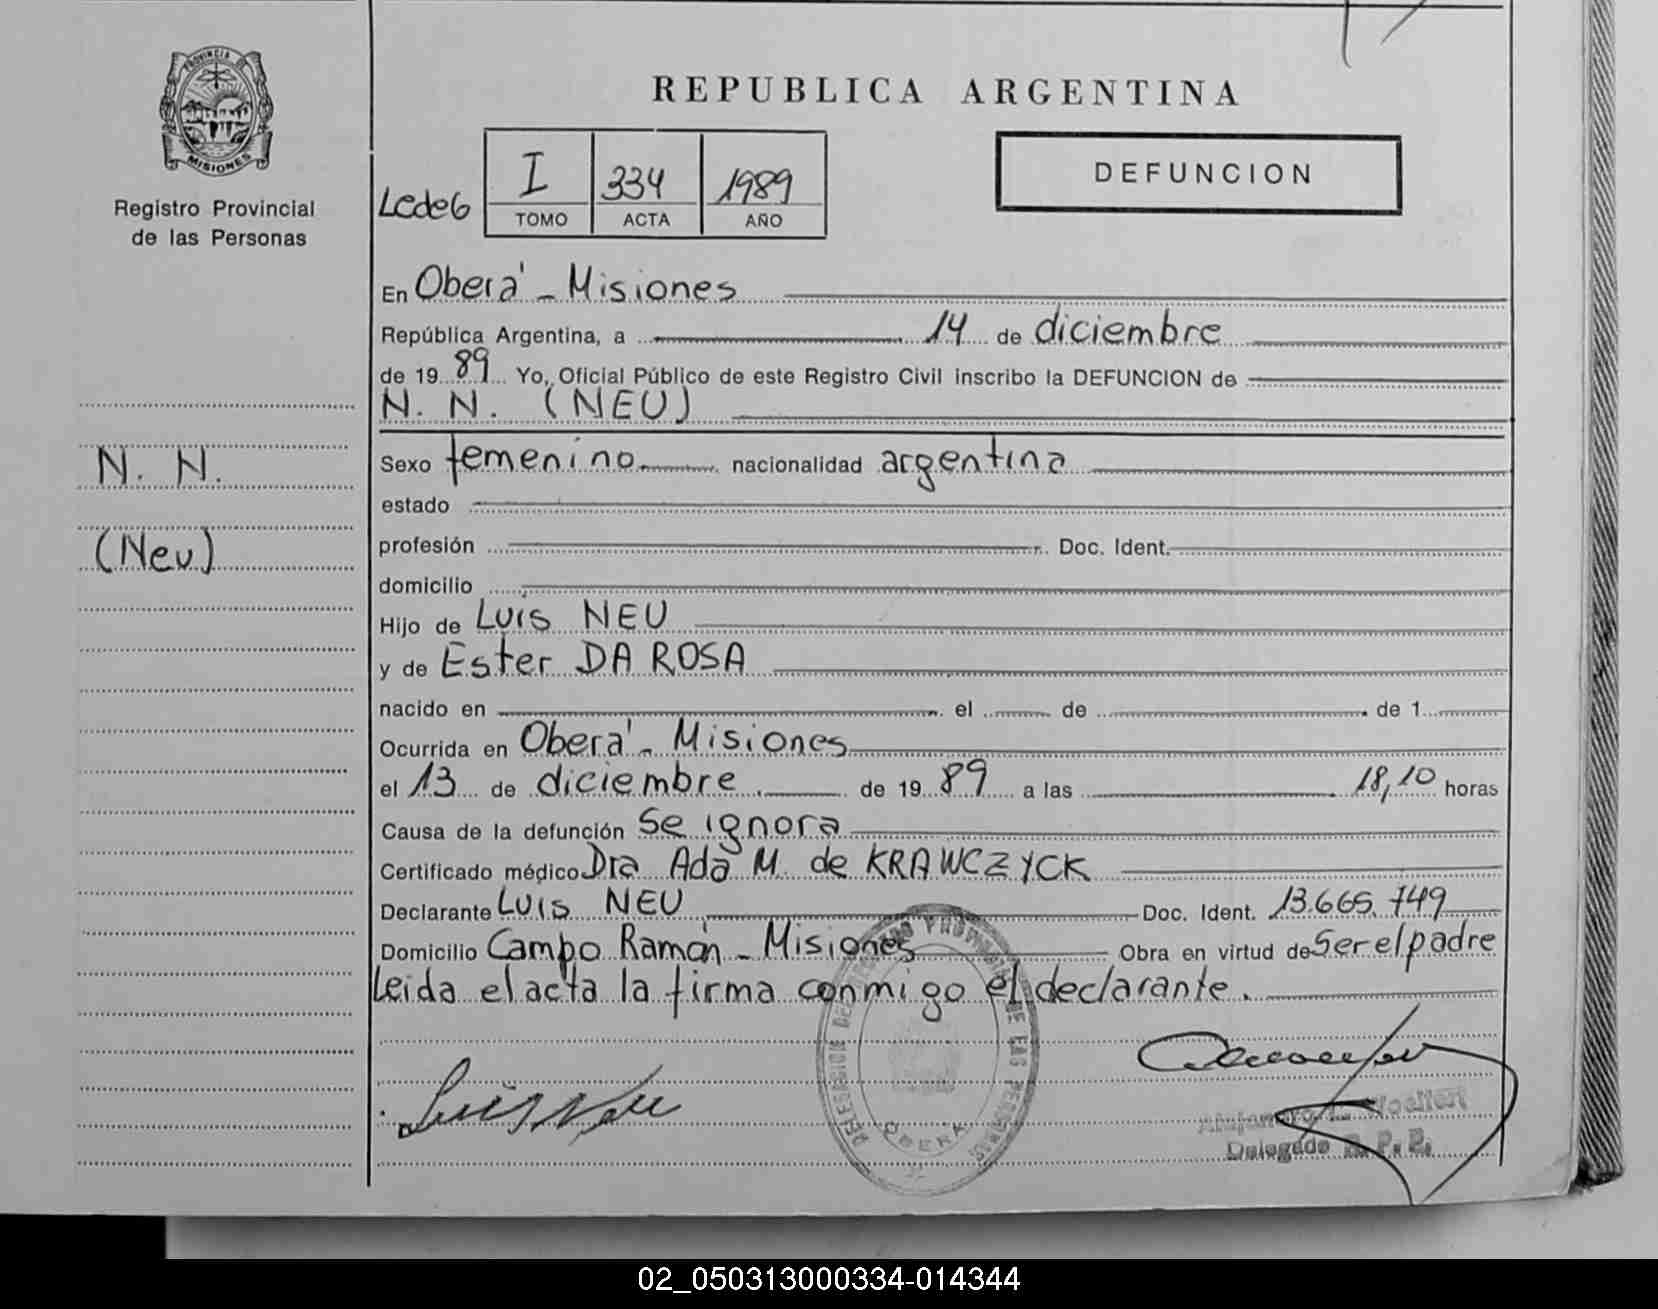 PROVINCIA DE
MISIONES
Registro Provincial
de las Personas
N. N.
(Neu)
REPUBLICA ARGENTINA
DEFUNCION
Ldede6
I 334 1989
TOMO ACTA AÑO
En Oberá - Misiones
República Argentina, a 14 de diciembre
de 19 89 Yo, Oficial Público de este Registro Civil inscribo la DEFUNCION de
N. N. (NEU)
Sexo femenino nacionalidad argentina
estado
profesión Doc. Ident.
domicilio
Hijo de Luis NEU
y de Ester DA ROSA
nacido en el de de 1
Ocurrida en Oberá - Misiones
el 13 de diciembre de 19 89 a las 18,10 horas
Causa de la defunción Se ignora
Certificado médico Dra Ada M. de KRAWCZYCK
Declarante Luis NEU Doc. Ident. 13.665.749
Domicilio Campo Ramón - Misiones Obra en virtud de Ser el padre
Leida el acta la firma conmigo el declarante.
Luis Neu
DELEGACION DEL REGISTRO PROVINCIAL DE LAS PERSONAS
OBERA
Delegado R. P. P.
02_050313000334-014344